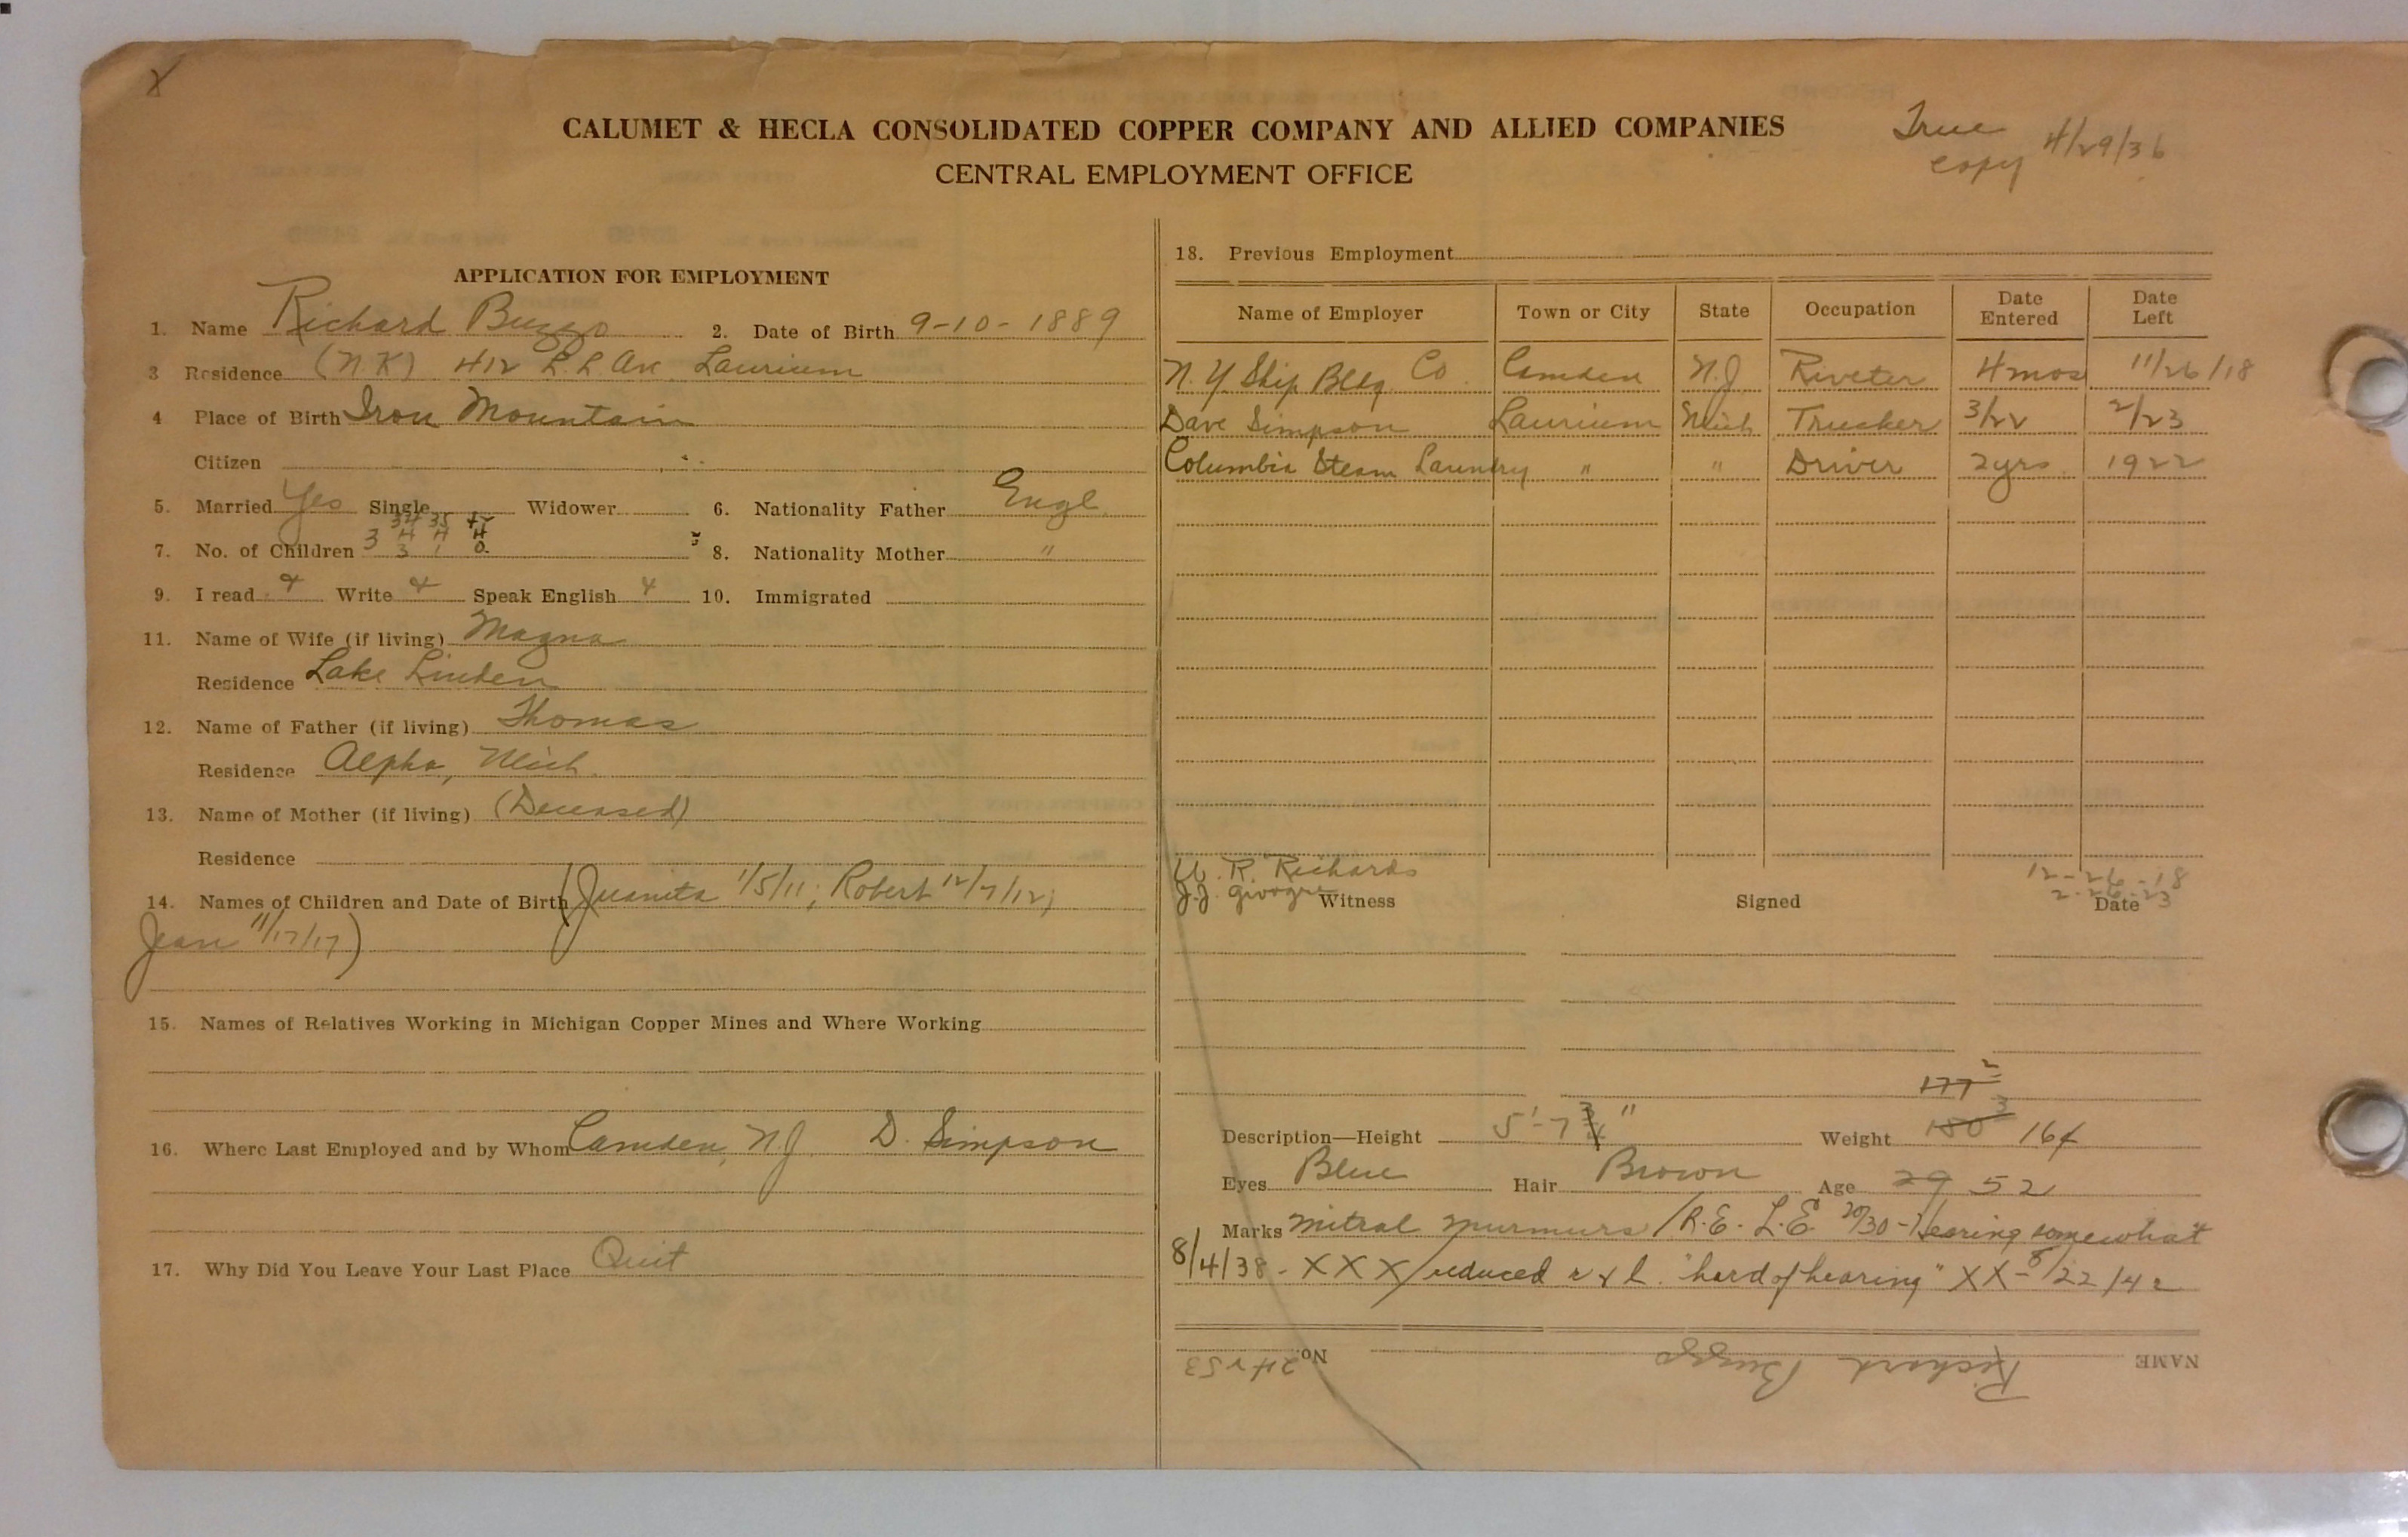 X
CALUMET & HECLA CONSOLIDATED COPPER COMPANY AND ALLIED COMPANIES
True copy 4/29/36
CENTRAL EMPLOYMENT OFFICE
APPLICATION FOR EMPLOYMENT
1. Name Richard Buzzo 2. Date of Birth 9-10-1889
3 Residence (N.K) 412 L.L Av. Laurium
4 Place of Birth Iron Mountain
Citizen
5. Married Yes Single Widower 6. Nationality Father Engl.
34 35
7. No. of Children 3 4 4 4 8. Nationality Mother "
3 1 0
9. I read Write Speak English 10. Immigrated
11. Name of Wife (if living) Magna
Residence Lake Linden
12. Name of Father (if living) Thomas
Residence Alpha, Mich.
13. Name of Mother (if living) (Deceased)
Residence
14. Names of Children and Date of Birth (Juanita 1/5/11; Robert 12/7/12;
Jean 11/17/17)
15. Names of Relatives Working in Michigan Copper Mines and Where Working
16. Where Last Employed and by Whom Camden, N.J. D. Simpson
17. Why Did You Leave Your Last Place Quit
18. Previous Employment
Name of Employer Town or City State Occupation Date Entered Date Left
N.Y Ship Bldg. Co. Camden N.J Riveter 4 mos 11/26/18
Dave Simpson Laurium Mich Trucker 3/22 2/23
Columbia Steam Laundry " " Driver 2 yrs. 1922
W. R. Richards 12-26-18
J.J. 2-26-23
Witness Signed Date
177 2
Description—Height 5'-7 3/4" Weight 180 3 164
Eyes Blue Hair Brown Age 29 52
Marks Mitral murmurs / R.E. L.E. 20/30 - Hearing somewhat
8/4/38 - XXX / reduced r & l. "hard of hearing" XX - 8/22/42
NAME Richard Buzzo No. 24253